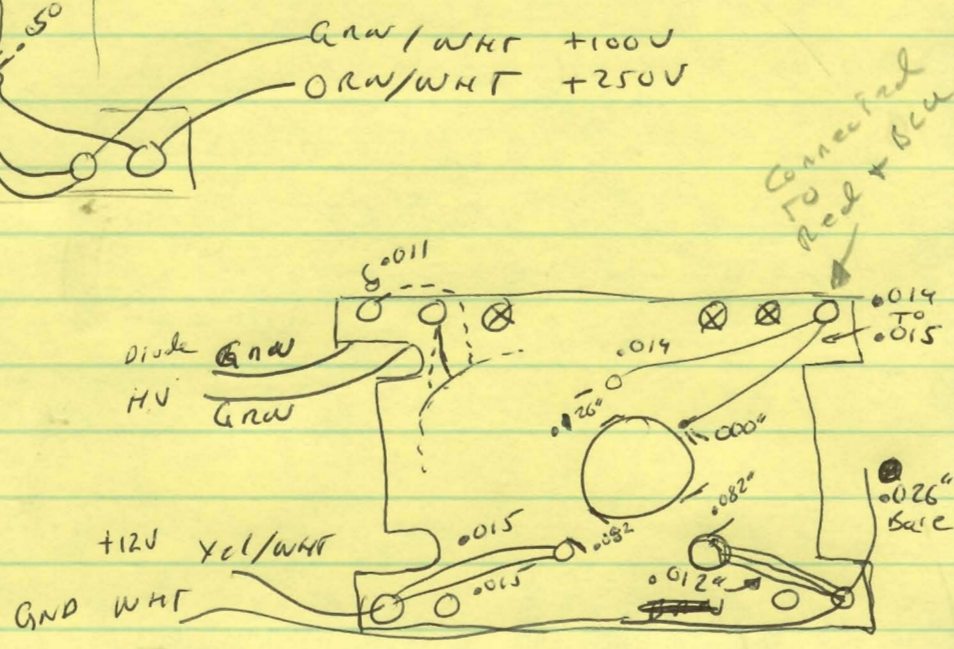 .50
GRN/WHT +100V
ORN/WHT +250V
Connected
TO
Red + BLU
.011
.014
TO
.015
.014
Diode GRN
HV GRN
.26"
.000"
.082"
.082
.026"
Bare
+12V Yel/WHT
.015
.015
.012"
GND WHT